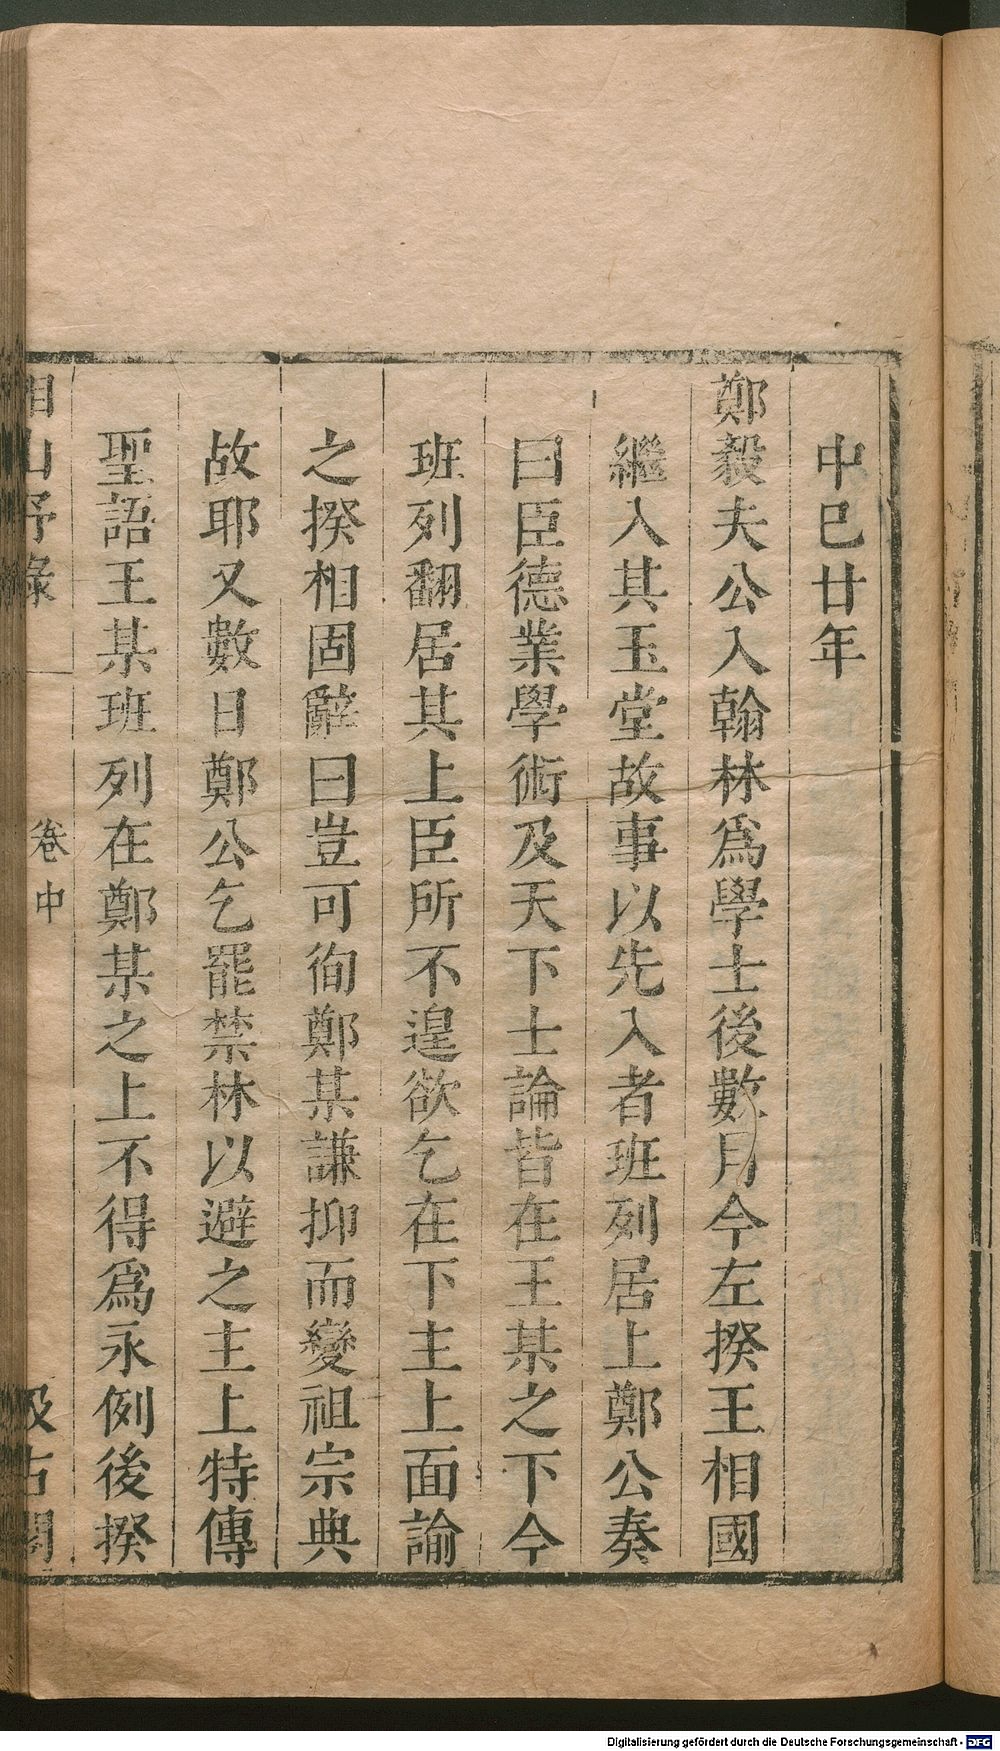 中已廿年
鄭毅夫公入翰林爲學士後數月今左揆王相國
繼入其玉堂故事以先入者班列居上鄭公奏
曰臣德業學術及天下士論皆在王某之下今
班列翻居其上臣所不遑欲乞在下主上面諭
之揆相固辭曰豈可徇鄭某謙抑而變祖宗典
故耶又數日鄭公乞罷禁林以避之主上特傳
聖語王某班列在鄭某之上不得爲永例後揆
相山野錄 卷中 汲古閣
Digitalisierung gefördert durch die Deutsche Forschungsgemeinschaft - DFG